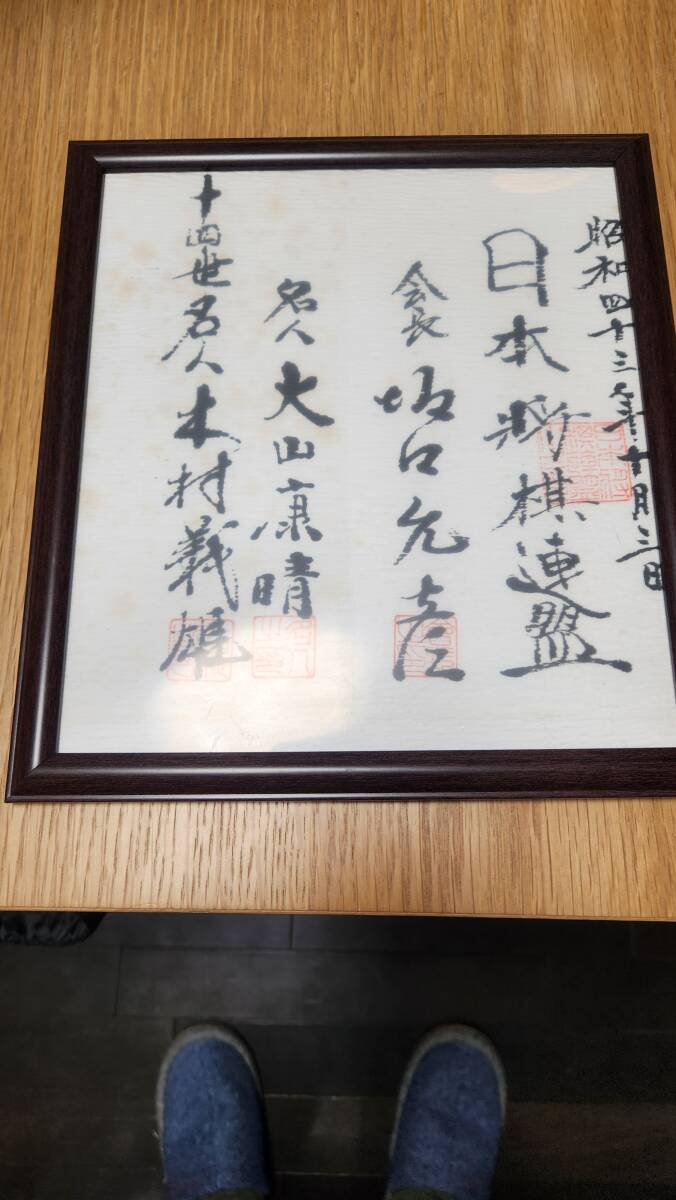 昭和四十三年十月三日
日本将棋連盟
会長 坂口允彦
名人 大山康晴
十四世名人 木村義雄